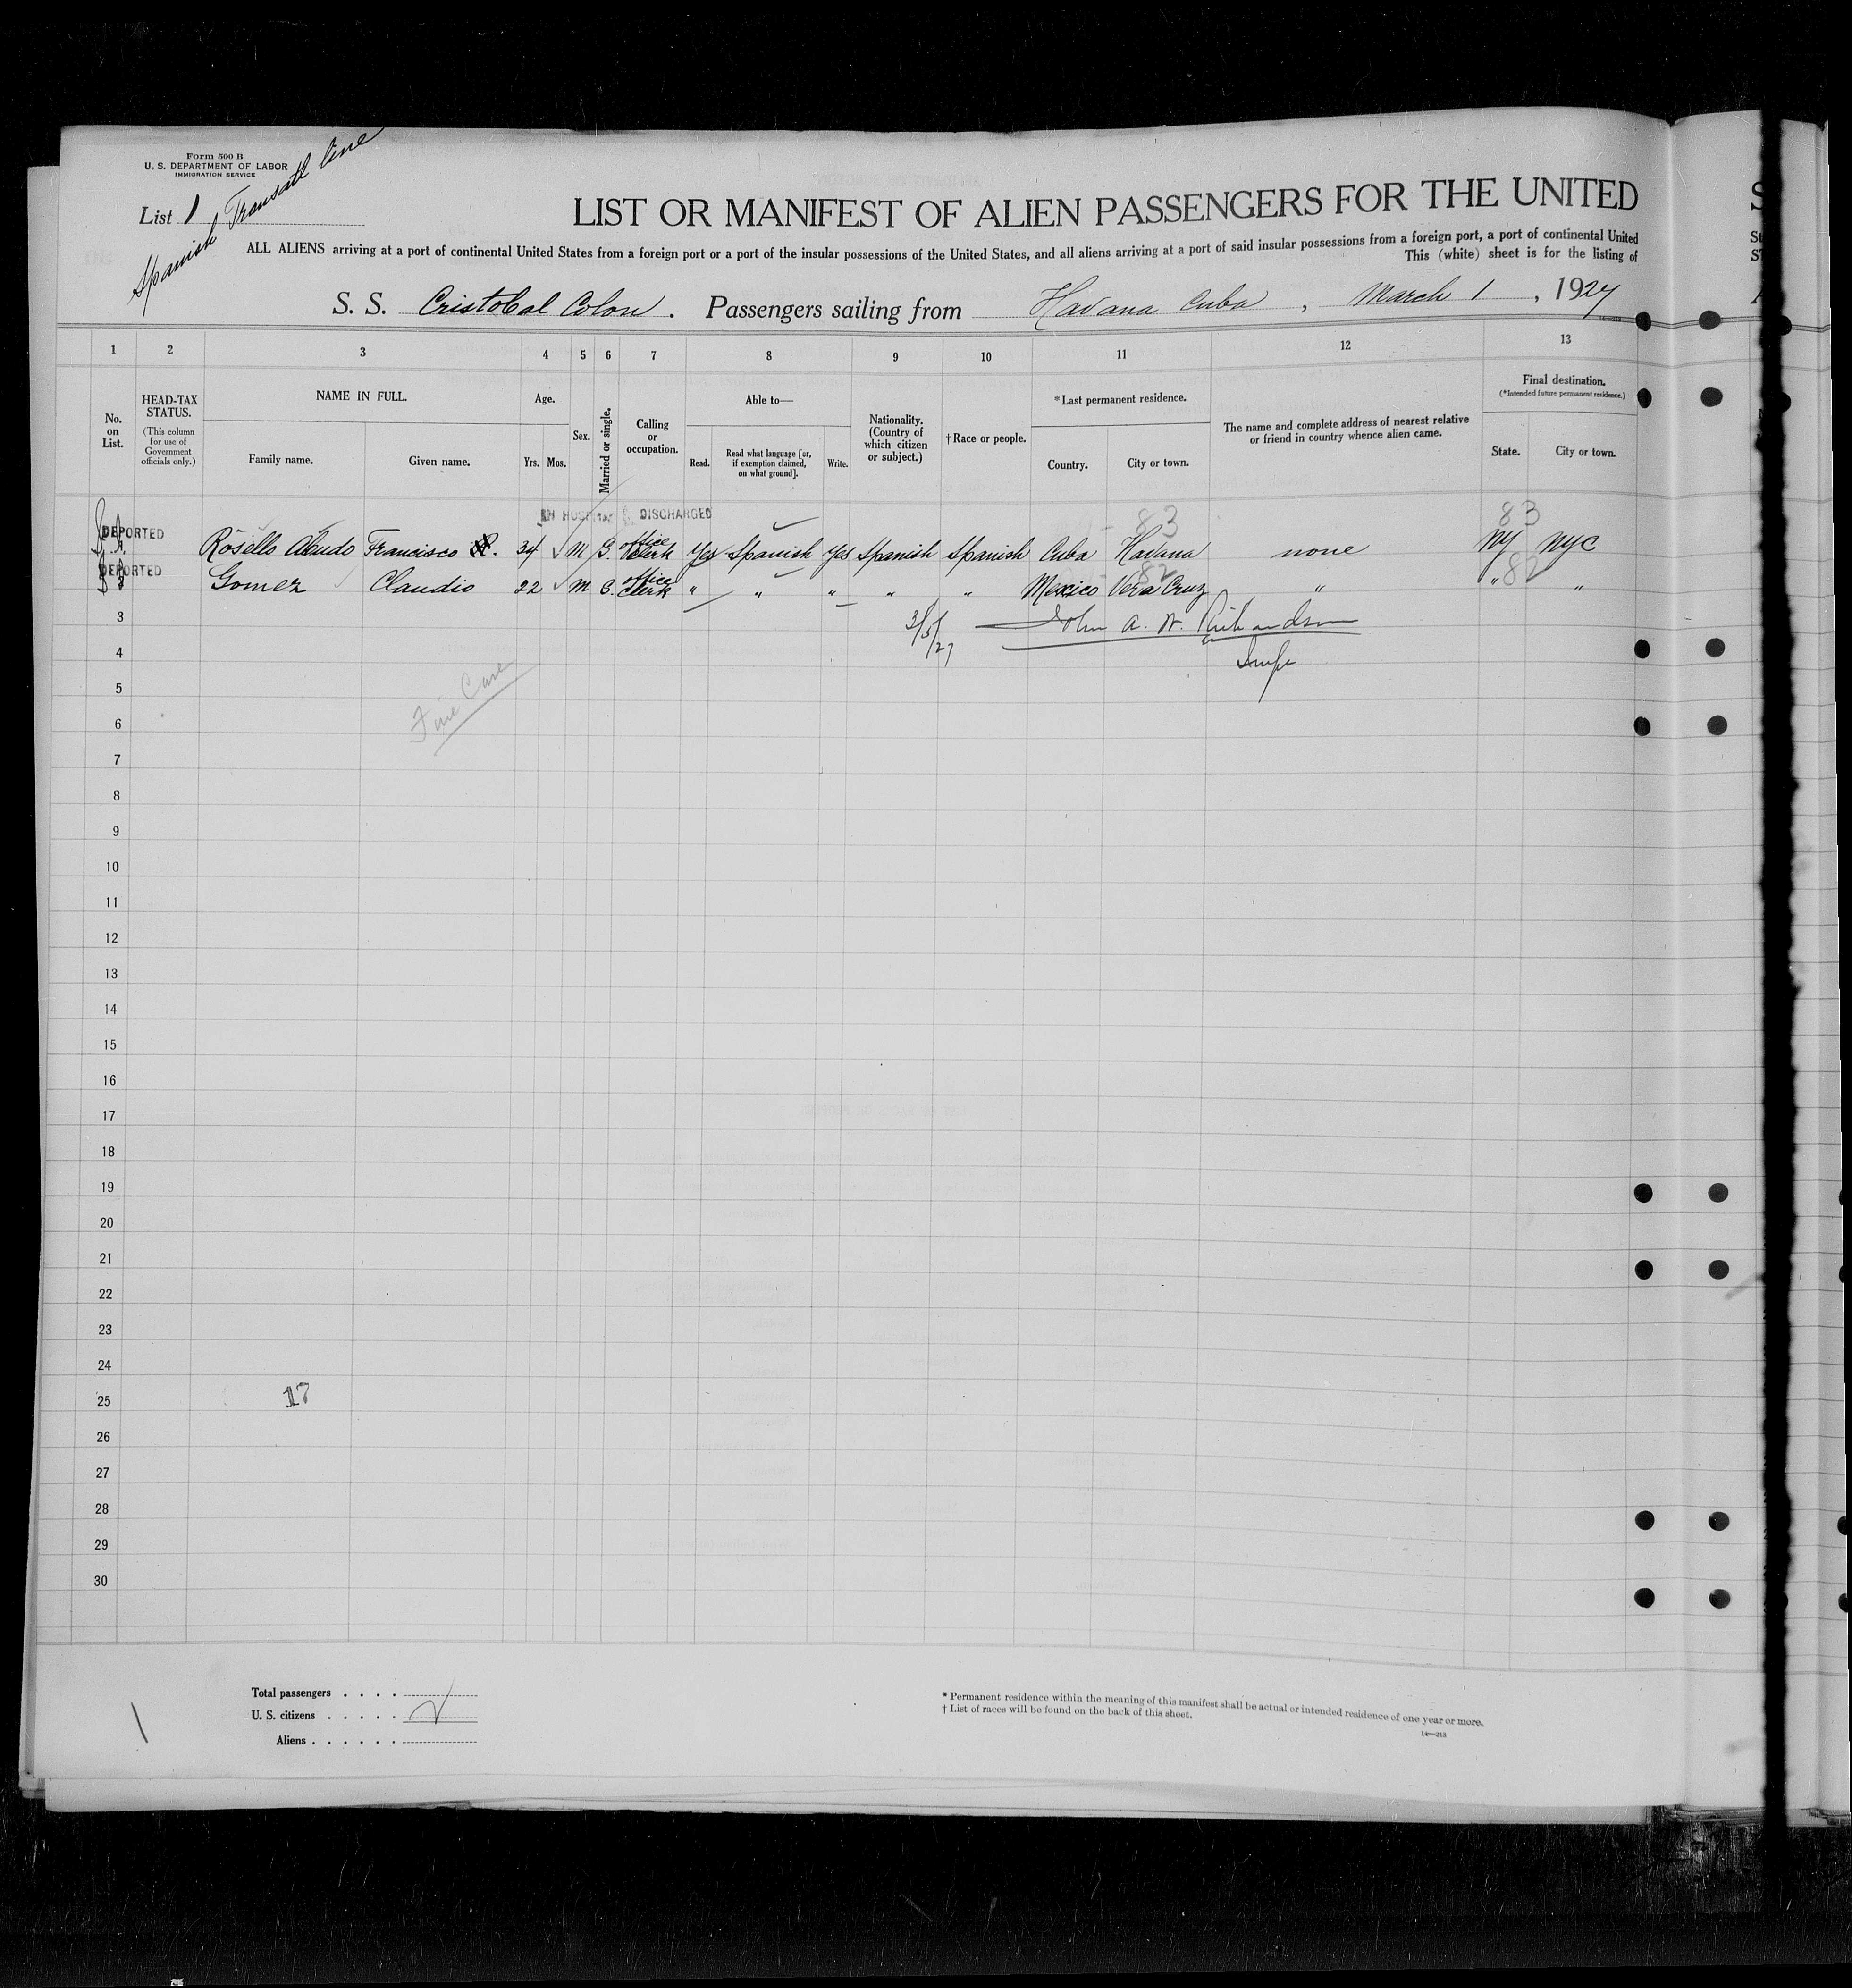 Form 500 B
U. S. DEPARTMENT OF LABOR
IMMIGRATION SERVICE
List 1
Spanish Transatl Line
LIST OR MANIFEST OF ALIEN PASSENGERS FOR THE UNITED
ALL ALIENS arriving at a port of continental United States from a foreign port or a port of the insular possessions of the United States, and all aliens arriving at a port of said insular possessions from a foreign port, a port of continental United
This (white) sheet is for the listing of
S. S. Cristobal Colon. Passengers sailing from Havana Cuba, March 1, 1927
1 2 3 4 5 6 7 8 9 10 11 12 13
No. on List.
HEAD-TAX STATUS.
(This column for use of Government officials only.)
NAME IN FULL.
Family name. Given name.
Age.
Yrs. Mos.
Sex.
Married or single.
Calling or occupation.
Able to—
Read. Read what language [or, if exemption claimed, on what ground]. Write.
Nationality. (Country of which citizen or subject.)
† Race or people.
*Last permanent residence.
Country. City or town.
The name and complete address of nearest relative or friend in country whence alien came.
Final destination.
(*Intended future permanent residence.)
State. City or town.
IN HOSPITAL DISCHARGED
83 83
DEPORTED Francisco 34 M S. office clerk Yes Spanish Yes Spanish Spanish Cuba Havana none NY NYC
82 82
DEPORTED Gomez Claudio 22 M S. office clerk " " " " " Mexico Vera Cruz " " "
3
3/5/27 John A. W. Richardson
4
Insp
5
Fine Case
6
7
8
9
10
11
12
13
14
15
16
17
18
19
20
21
22
23
24
25
17
26
27
28
29
30
Total passengers . . . .
U. S. citizens . . . . .
Aliens . . . . . .
* Permanent residence within the meaning of this manifest shall be actual or intended residence of one year or more.
† List of races will be found on the back of this sheet.
14—213